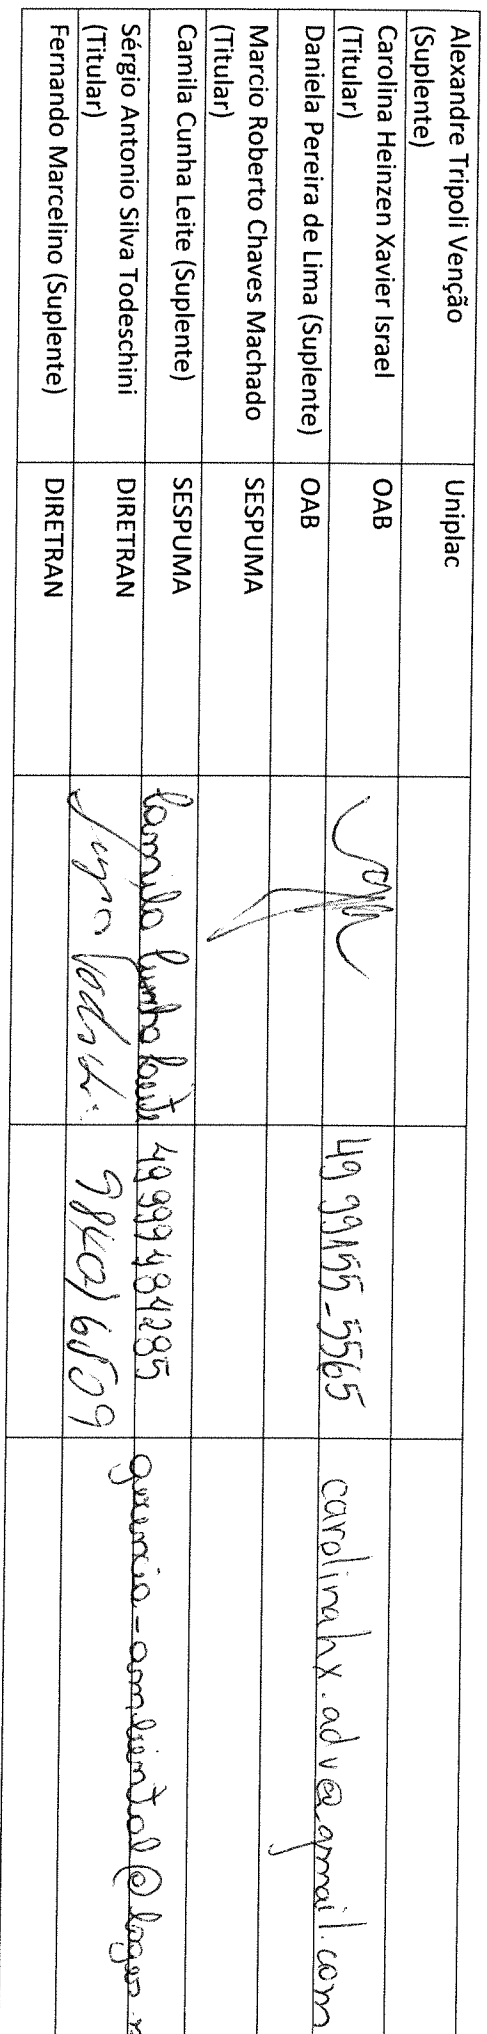 Alexandre Tripoli Venção
(Suplente)
Uniplac
Carolina Heinzen Xavier Israel
(Titular)
OAB
49 99155-5565
carolinahx.adv@gmail.com
Daniela Pereira de Lima (Suplente)
OAB
Marcio Roberto Chaves Machado
(Titular)
SESPUMA
Camila Cunha Leite (Suplente)
SESPUMA
Camila Cunha Leite
49999484285
gerencia-ambiental@lages.
Sérgio Antonio Silva Todeschini
(Titular)
DIRETRAN
Fernando Marcelino (Suplente)
DIRETRAN